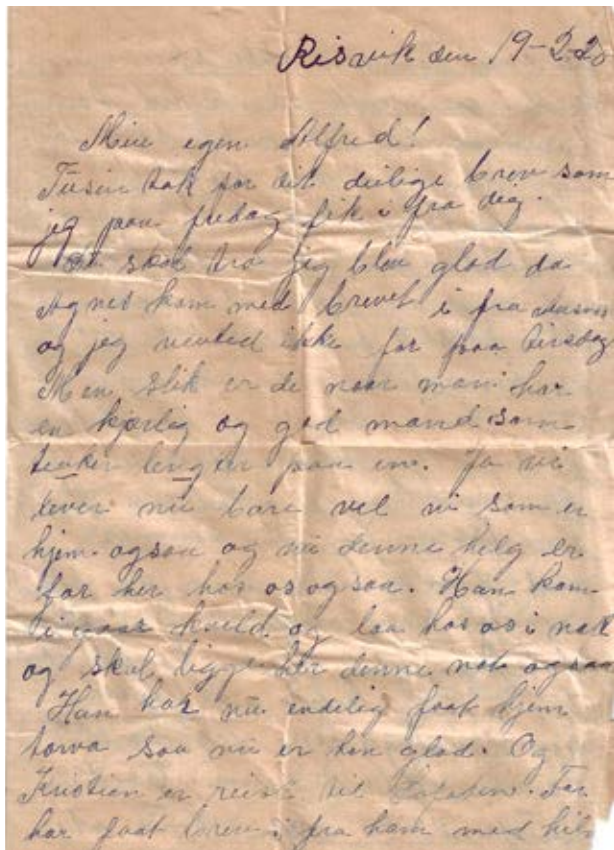 Risvik den 19-2-28
Min egen Alfred!
Tusen tak for dit deilige brev som
jeg paa fredag fik i fra dig.
skal tro jeg blev glad da
Agnes kom med brevet i fra
og jeg vented ikke før paa tirsdag
Men slik er de naar man har
en kjærlig og god mand som
tenker lenger paa en. Ja vi
lever nu bare vel vi som er
hjem ogsaa og nu denne helg er
far her hos os ogsaa. Han kom
i gaar kveld og laa hos os i nat
og skal ligge her denne nat ogsaa
Han har nu endelig faat hjem
torva saa nu er han glad. Og
Kristian er reist til Lofoten. Far
har faat brev i fra ham med